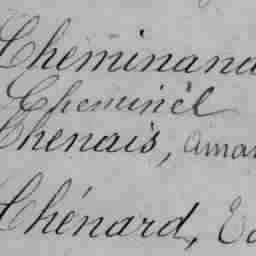 Cheminand
Cheminèl
Chenais, aman
Chénard, Ed